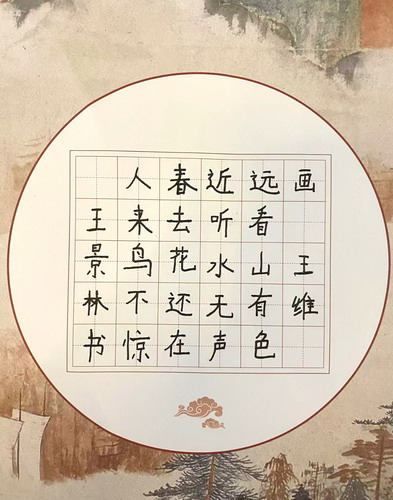 画 王维
远看山有色
近听水无声
春去花还在
人来鸟不惊
王景林书